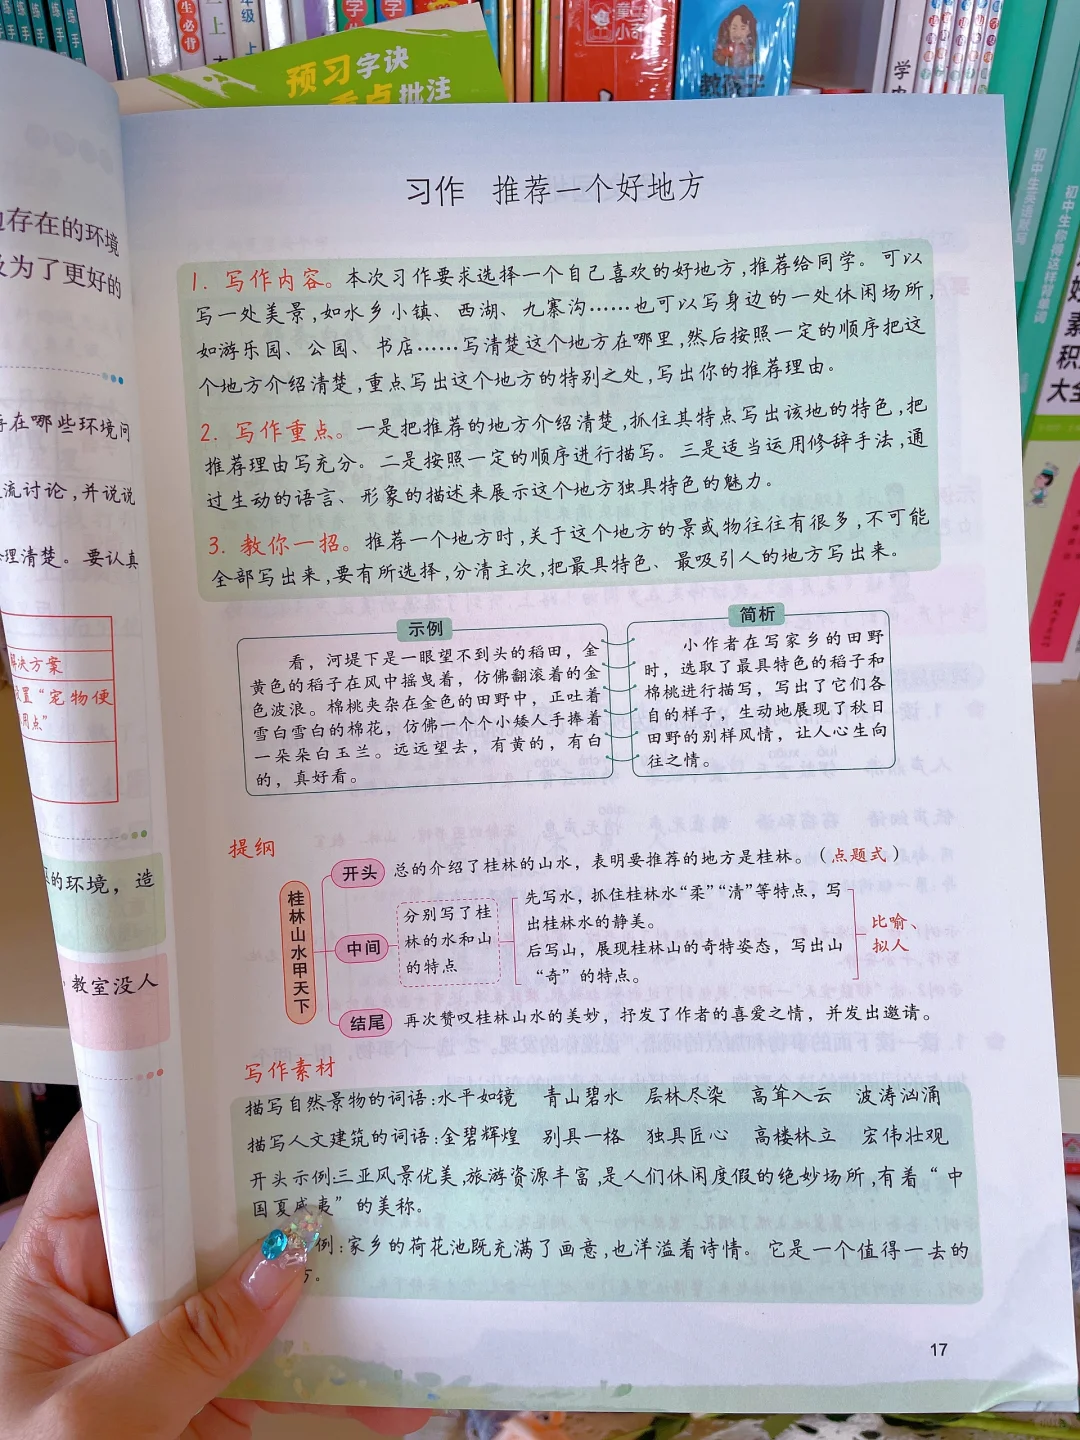 预习字诀
重点批注
学
初中生英语默写
初中生你得这样背单词
素
积
大全
边存在的环境
及为了更好的
存在哪些环境问
流讨论，并说说
理清楚。要认真
解决方案
设置“宠物便
用点”
的环境，造
教室没人
习作 推荐一个好地方
1. 写作内容。本次习作要求选择一个自己喜欢的好地方，推荐给同学。可以
写一处美景，如水乡小镇、西湖、九寨沟……也可以写身边的一处休闲场所，
如游乐园、公园、书店……写清楚这个地方在哪里，然后按照一定的顺序把这
个地方介绍清楚，重点写出这个地方的特别之处，写出你的推荐理由。
2. 写作重点。一是把推荐的地方介绍清楚，抓住其特点写出该地的特色，把
推荐理由写充分。二是按照一定的顺序进行描写。三是适当运用修辞手法，通
过生动的语言、形象的描述来展示这个地方独具特色的魅力。
3. 教你一招。推荐一个地方时，关于这个地方的景或物往往有很多，不可能
全部写出来，要有所选择，分清主次，把最具特色、最吸引人的地方写出来。
示例
看，河堤下是一眼望不到头的稻田，金
黄色的稻子在风中摇曳着，仿佛翻滚着的金
色波浪。棉桃夹杂在金色的田野中，正吐着
雪白雪白的棉花，仿佛一个个小矮人手捧着
一朵朵白玉兰。远远望去，有黄的，有白
的，真好看。
简析
小作者在写家乡的田野
时，选取了最具特色的稻子和
棉桃进行描写，写出了它们各
自的样子，生动地展现了秋日
田野的别样风情，让人心生向
往之情。
提纲
桂林山水甲天下
开头 总的介绍了桂林的山水，表明要推荐的地方是桂林。（点题式）
中间
分别写了桂
林的水和山
的特点
先写水，抓住桂林水“柔”“清”等特点，写
出桂林水的静美。
后写山，展现桂林山的奇特姿态，写出山
“奇”的特点。
比喻、
拟人
结尾 再次赞叹桂林山水的美妙，抒发了作者的喜爱之情，并发出邀请。
写作素材
描写自然景物的词语：水平如镜 青山碧水 层林尽染 高耸入云 波涛汹涌
描写人文建筑的词语：金碧辉煌 别具一格 独具匠心 高楼林立 宏伟壮观
开头示例：三亚风景优美，旅游资源丰富，是人们休闲度假的绝妙场所，有着“中
国夏威夷”的美称。
例：家乡的荷花池既充满了画意，也洋溢着诗情。它是一个值得一去的
方。
17